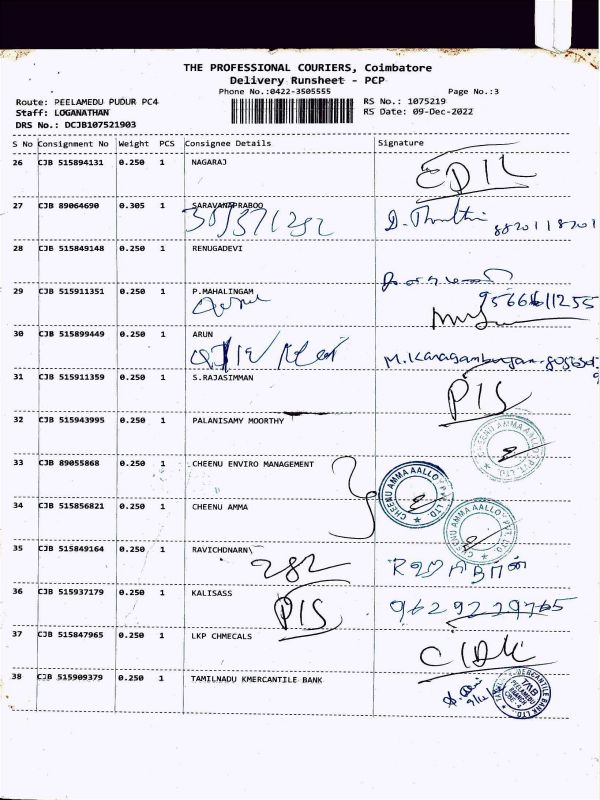 THE PROFESSIONAL COURIERS, Coimbatore
Delivery Runsheet - PCP
Phone No.:0422-3505555 Page No.:3
Route: PEELAMEDU PUDUR PC4 RS No.: 1075219
Staff: LOGANATHAN RS Date: 09-Dec-2022
DRS No.: DCJB107521903
S No Consignment No Weight PCS Consignee Details Signature
26 CJB 515894131 0.250 1 NAGARAJ
27 CJB 89064690 0.305 1 SARAVANAPRABOO
8820118201
28 CJB 515849148 0.250 1 RENUGADEVI
29 CJB 515911351 0.250 1 P.MAHALINGAM
30 CJB 515899449 0.250 1 ARUN
31 CJB 515911359 0.250 1 S.RAJASIMMAN
PIS
32 CJB 515943995 0.250 1 PALANISAMY MOORTHY
CHEENU AMMA AALLOY PVT. LTD.
33 CJB 89055868 0.250 1 CHEENU ENVIRO MANAGEMENT
CHEENU AMMA AALLOY PVT. LTD.
34 CJB 515856821 0.250 1 CHEENU AMMA
CHEENU AMMA AALLOY PVT. LTD.
35 CJB 515849164 0.250 1 RAVICHDNARN\
282
36 CJB 515937179 0.250 1 KALISASS
PIS 9629229765
37 CJB 515847965 0.250 1 LKP CHMECALS
38 CJB 515909379 0.250 1 TAMILNADU KMERCANTILE BANK
TMB
PEELAMEDU
BRANCH